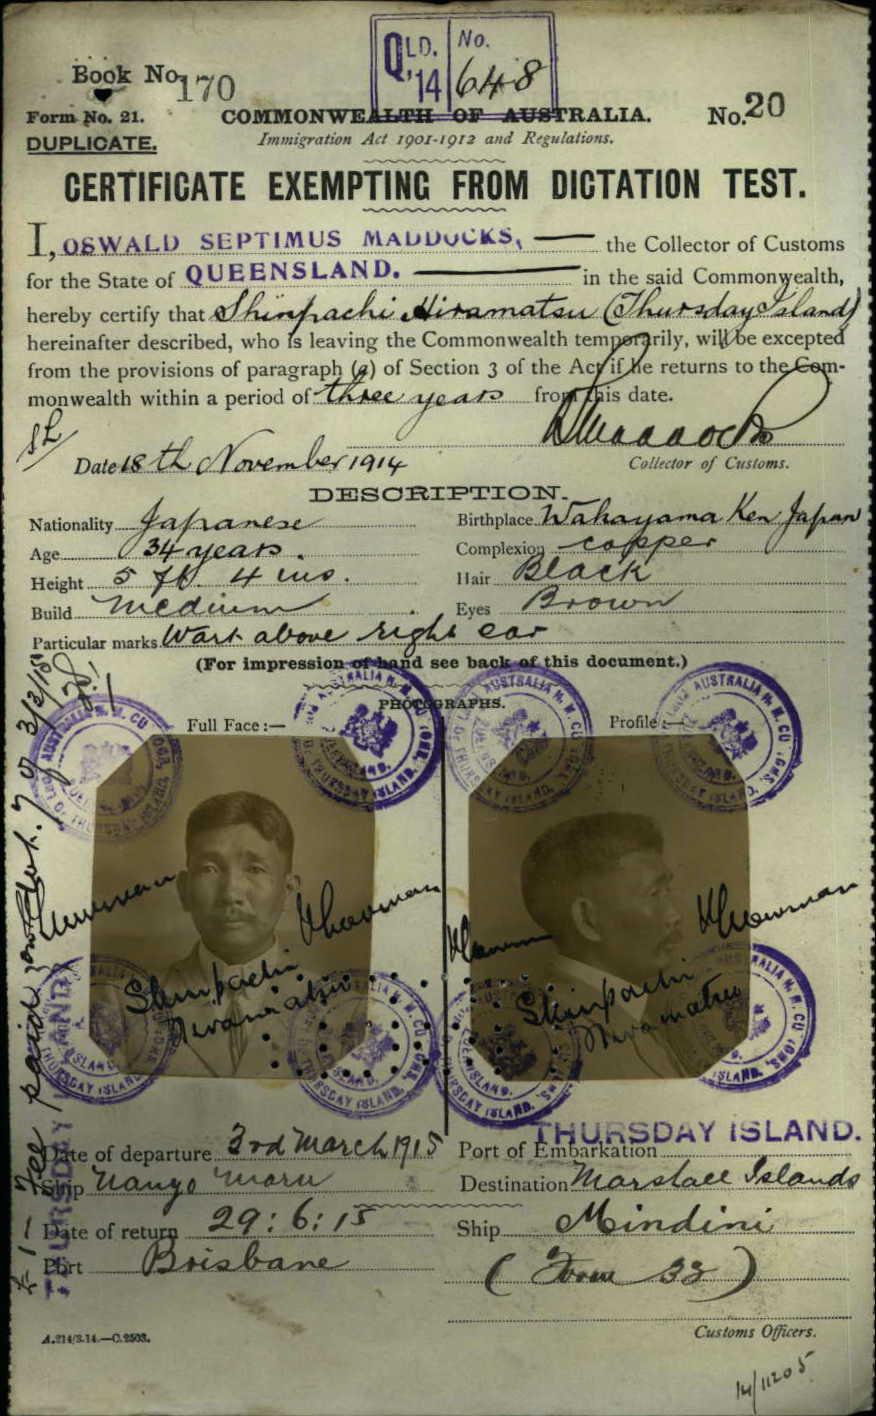 QLD. No.
'14 648
Book No. 170
Form No. 21.
COMMONWEALTH OF AUSTRALIA.
No. 20
DUPLICATE.
Immigration Act 1901-1912 and Regulations.
CERTIFICATE EXEMPTING FROM DICTATION TEST.
I, OSWALD SEPTIMUS MADDOCKS, the Collector of Customs
for the State of QUEENSLAND. in the said Commonwealth,
hereby certify that Shinpachi Hiramatsu (Thursday Island)
hereinafter described, who is leaving the Commonwealth temporarily, will be excepted
from the provisions of paragraph (a) of Section 3 of the Act if he returns to the Com-
monwealth within a period of three years from this date.
Date 18th November 1914
Collector of Customs.
DESCRIPTION.
Nationality Japanese Birthplace Wakayama Ken Japan
Age 34 years. Complexion copper
Height 5 ft. 4 ins. Hair Black
Build medium Eyes Brown
Particular marks Wart above right ear
(For impression of hand see back of this document.)
PHOTOGRAPHS.
Full Face :— Profile :—
Shinpachi
Hiramatsu
Shinpachi
Hiramatsu
THURSDAY ISLAND.
Date of departure 3rd March 1915 Port of Embarkation THURSDAY ISLAND.
Ship Nanyo Maru Destination Marshall Islands
Date of return 29:6:15 Ship Mindini
Port Brisbane (Form 32)
Customs Officers.
A.214/3.14.—C.2503.
14/11205